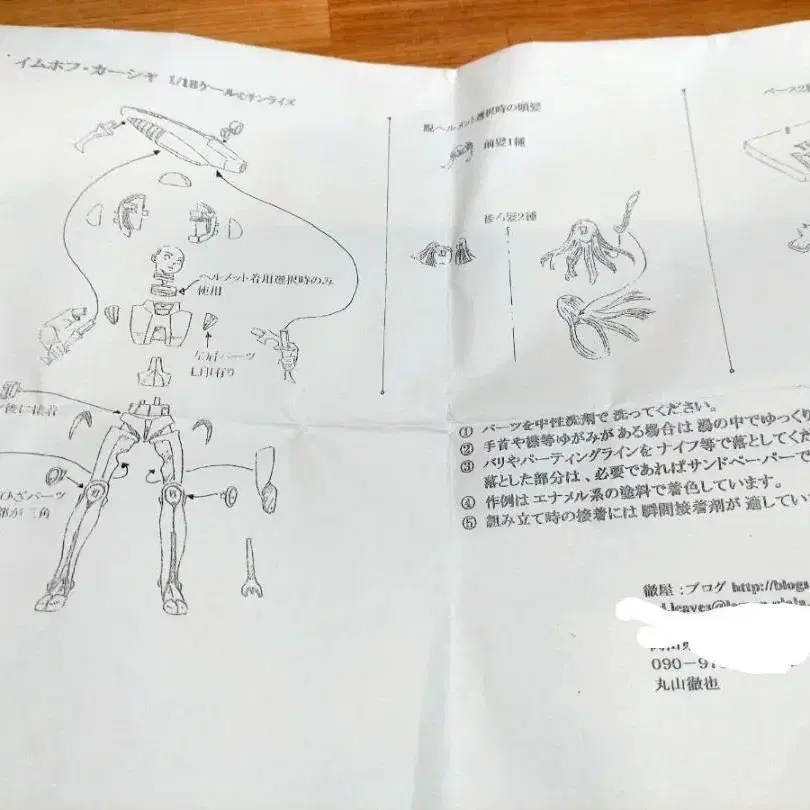 イムホフ・カーシャ 1/18ケール ©サンライズ
脱ヘルメット選択時の頭髪
前髪1種
後ろ髪2種
ベース2
ヘルメット着用選択時のみ
使用
左肩パーツ
後に接着
ひざパーツ
部が三角
① パーツを中性洗剤で洗ってください。
② 手首や襟等ゆがみがある場合は湯の中でゆっくり
③ バリやパーティングラインをナイフ等で落としてくだ
落とした部分は、必要であればサンドペーパーで
④ 作例はエナメル系の塗料で着色しています。
⑤ 組み立て時の接着には瞬間接着剤が適してい
徹屋:ブログ http://blogs
090-97
丸山徹也